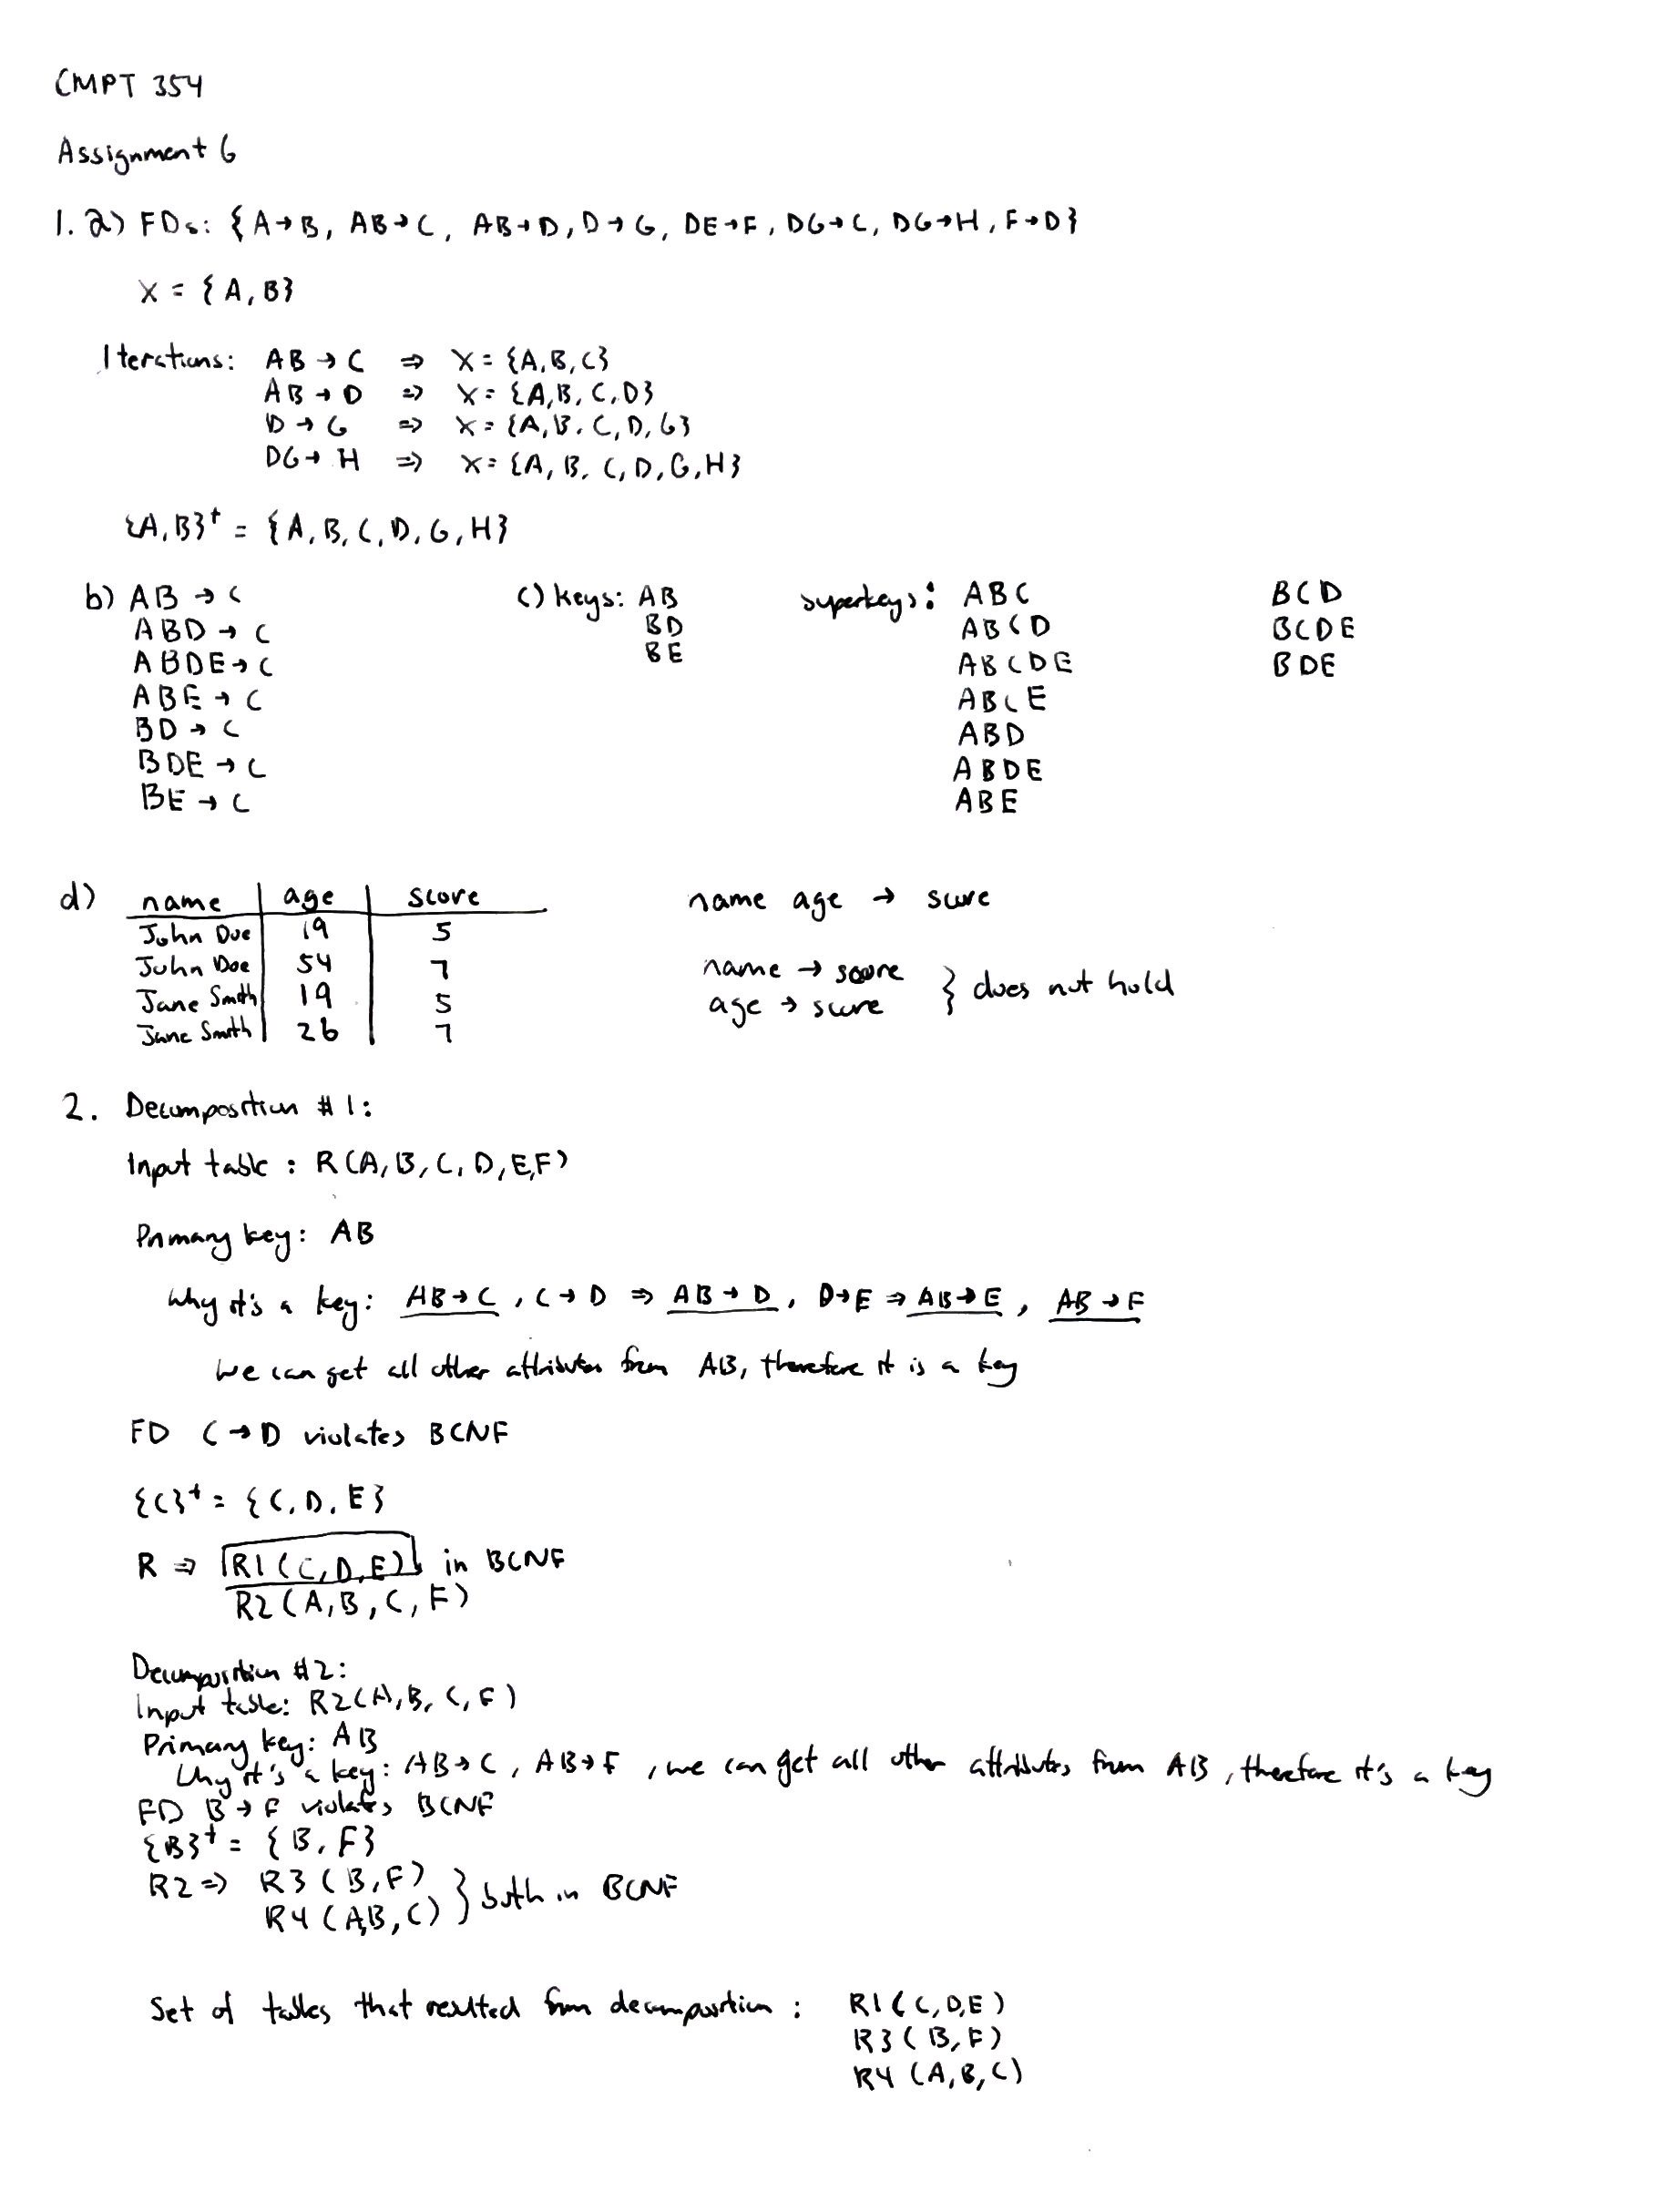 CMPT 354
Assignment 6
1. a) FDs: {A→B, AB→C, AB→D, D→G, DE→F, DG→C, DG→H, F→D}
X = {A, B}
Iterations: AB → C ⇒ X = {A, B, C}
AB → D ⇒ X = {A, B, C, D}
D → G ⇒ X = {A, B, C, D, G}
DG → H ⇒ X = {A, B, C, D, G, H}
{A, B}⁺ = {A, B, C, D, G, H}
b) AB → C
ABD → C
ABDE → C
ABE → C
BD → C
BDE → C
BE → C
c) keys: AB
BD
BE
superkeys: ABC
ABCD
ABCDE
ABCE
ABD
ABDE
ABE
BCD
BCDE
BDE
d) name | age | score
John Doe | 19 | 5
John Doe | 54 | 7
Jane Smith | 19 | 5
Jane Smith | 26 | 7
name age → score
name → score
age → score } does not hold
2. Decomposition #1:
Input table: R(A, B, C, D, E, F)
Primary key: AB
Why it's a key: AB→C, C→D ⇒ AB→D, D→E ⇒ AB→E, AB→F
We can get all other attributes from AB, therefore it is a key
FD C→D violates BCNF
{C}⁺ = {C, D, E}
R ⇒ R1(C, D, E) in BCNF
R2(A, B, C, F)
Decomposition #2:
Input table: R2(A, B, C, F)
Primary key: AB
Why it's a key: AB→C, AB→F, we can get all other attributes from AB, therefore it's a key
FD B→F violates BCNF
{B}⁺ = {B, F}
R2 ⇒ R3(B, F)
R4(A, B, C) } both in BCNF
Set of tables that resulted from decomposition: R1(C, D, E)
R3(B, F)
R4(A, B, C)